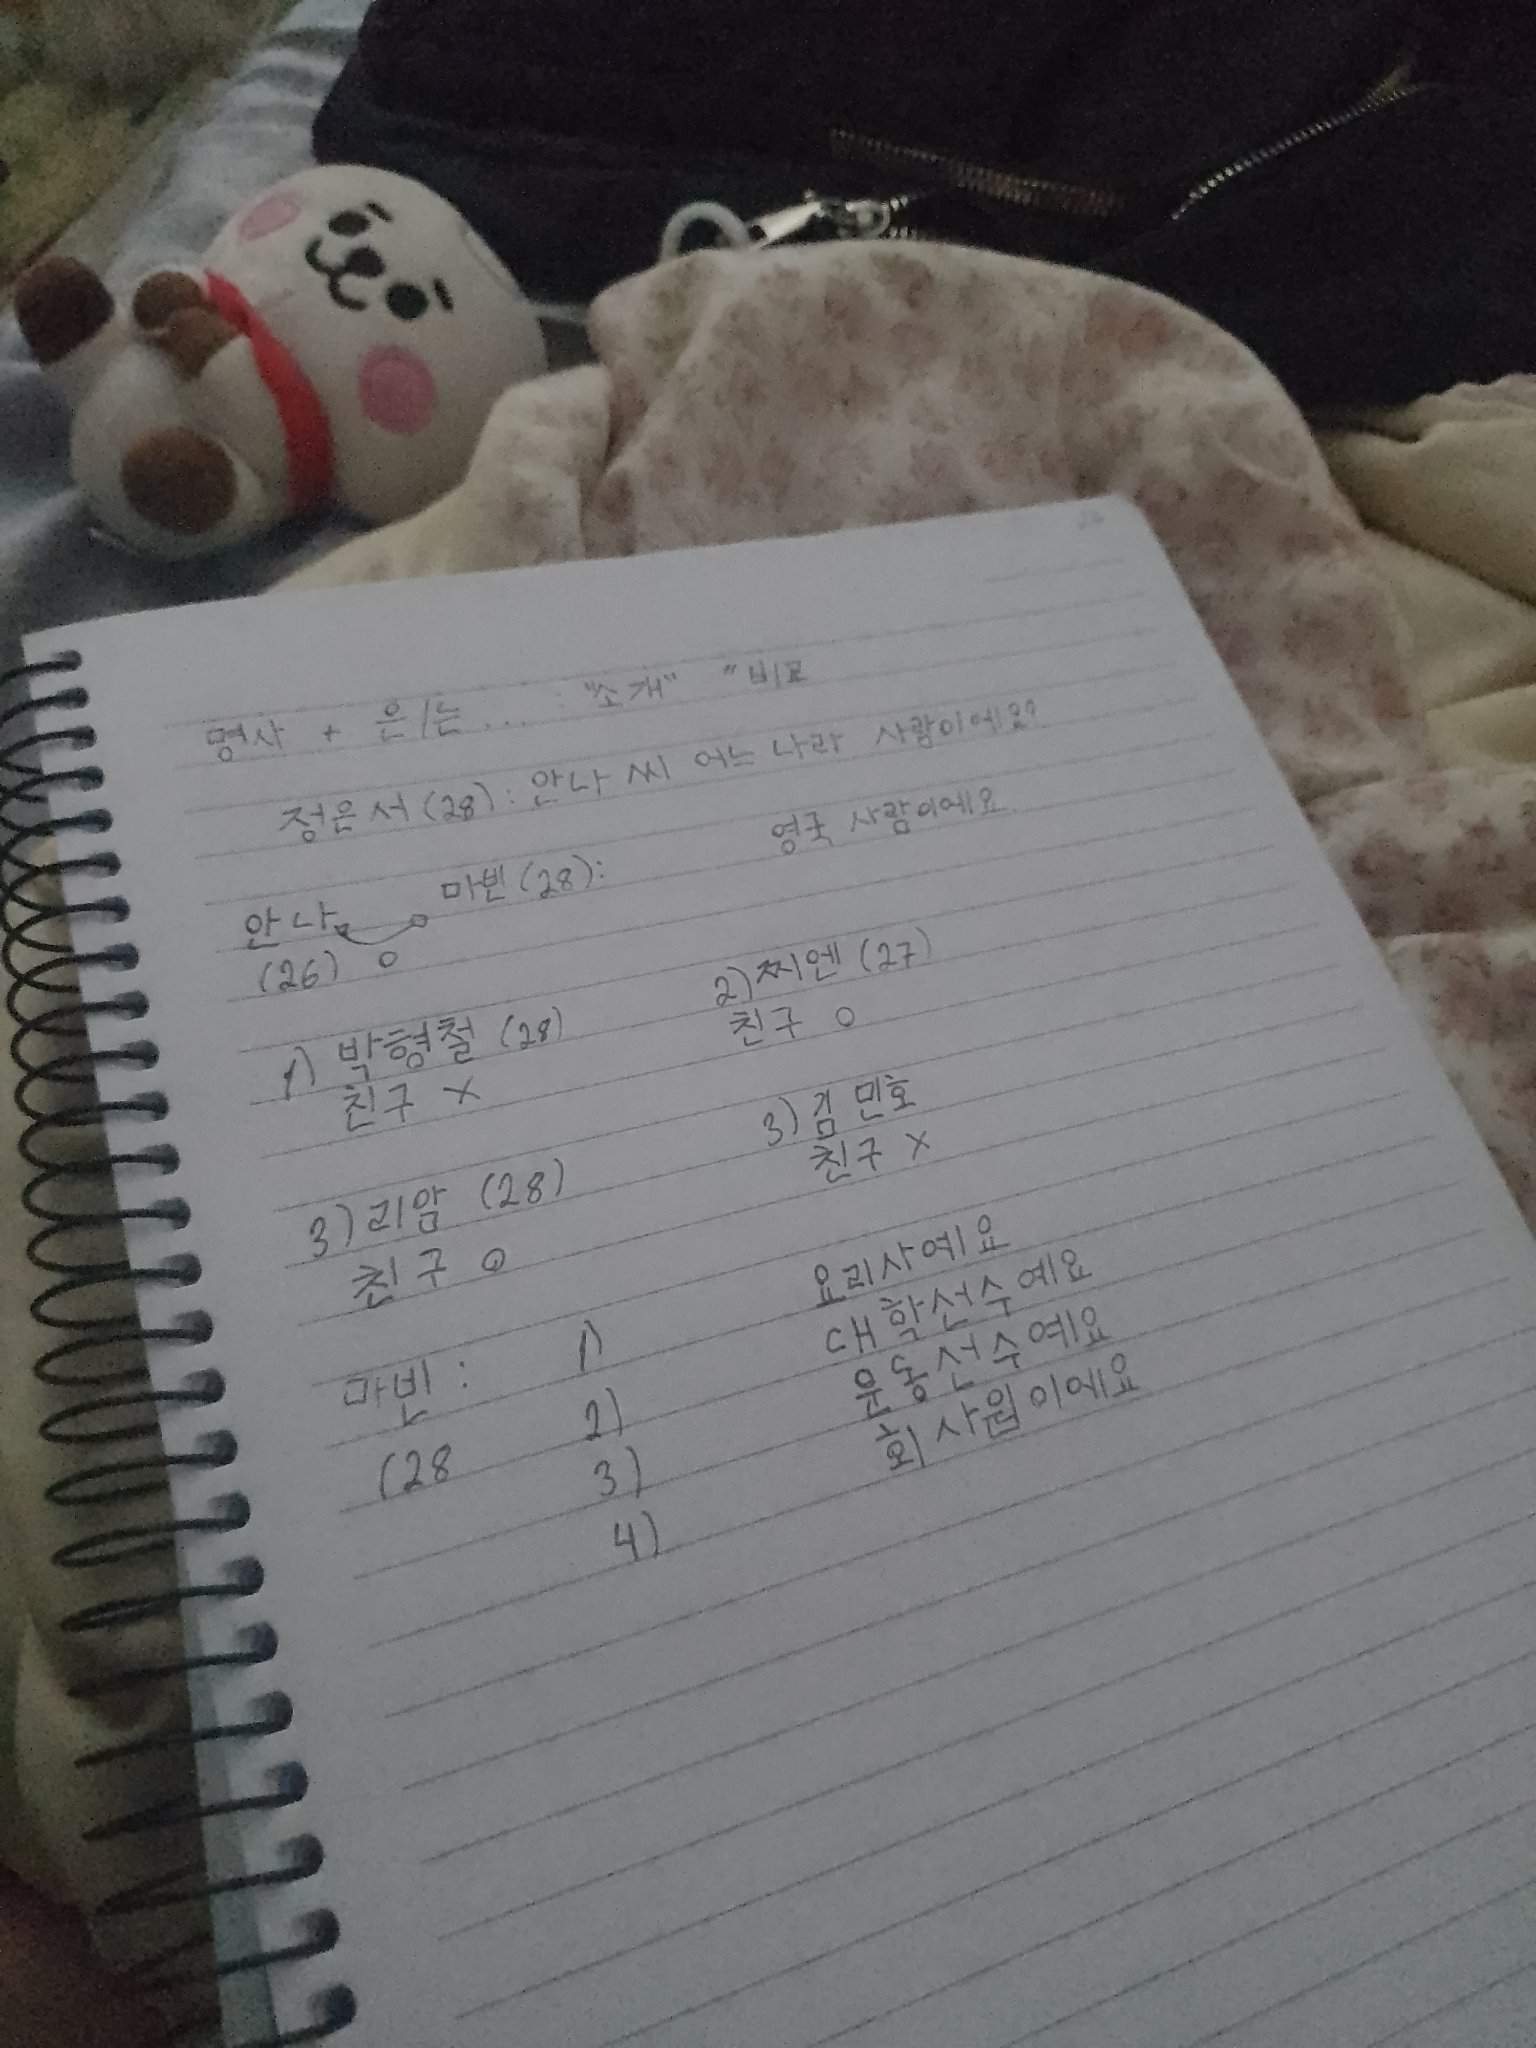 명사 + 은/는 .... : "소개" "비교
정은서 (28) : 안나 씨 어느 나라 사람이에요?
마빈 (28) : 영국 사람이에요.
안나
(26) o
1) 박형철 (28)
친구 X
2) 찌엔 (27)
친구 o
3) 리암 (28)
친구 o
3) 김민호
친구 X
마빈 : 1) 요리사예요
(28 2) 대학선수예요
3) 운동선수예요
4) 회사원이에요